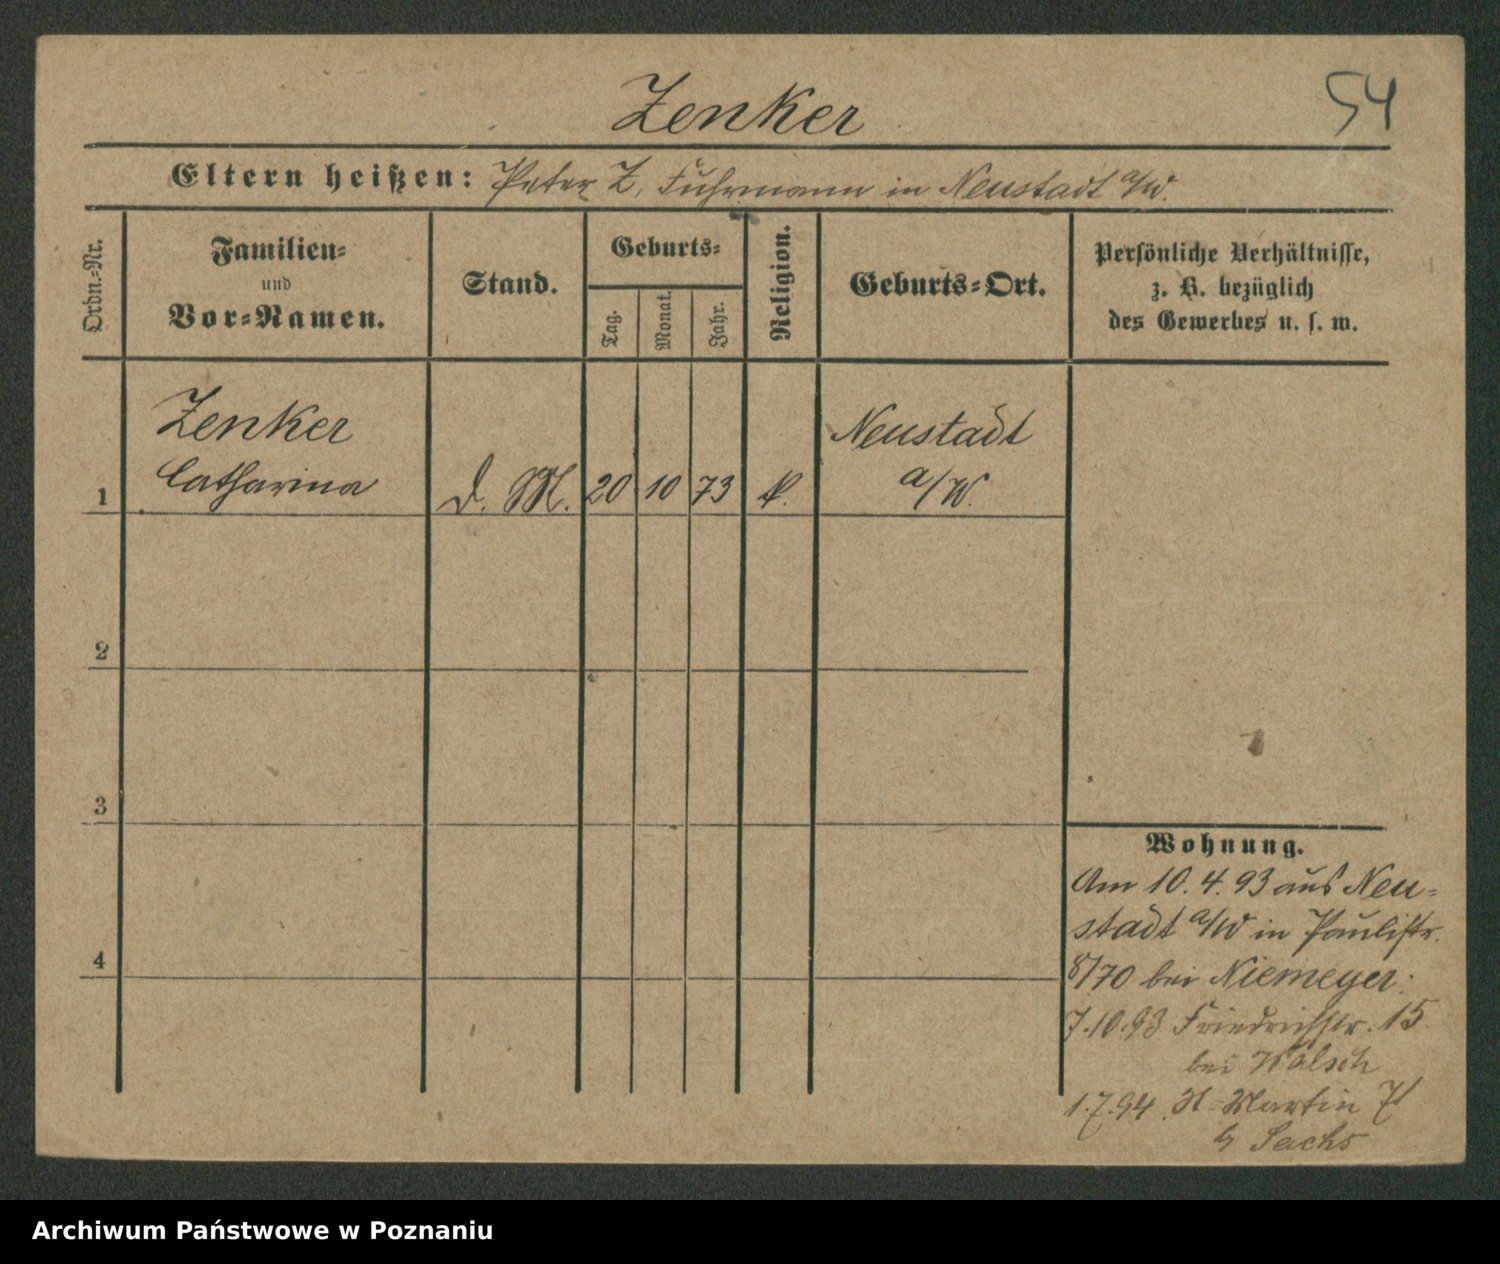 Zenker
54
Eltern heißen: Peter Z, Fuhrmann in Neustadt a/W.
Ordn.-Nr.
Familien-
und
Vor-Namen.
Stand.
Geburts-
Tag.
Monat.
Jahr.
Religion.
Geburts-Ort.
Persönliche Verhältnisse,
z. B. bezüglich
des Gewerbes u. s. w.
Zenker
Catharina
1
D. M.
20
10
73
k.
Neustadt
a/W.
2
3
4
Wohnung.
Am 10.4.93 aus Neu-
stadt a/W in Paulistr.
8/70 bei Niemeyer.
7.10.93 Friedrichstr. 15
bei Walsch
1.7.94 St Martin
b Sachs
Archiwum Państwowe w Poznaniu